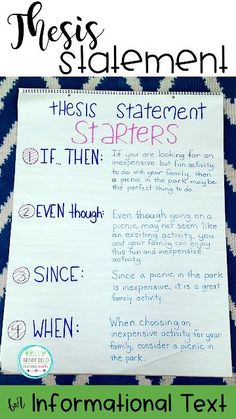 Thesis
Statement
thesis statement
Starters
1 IF... THEN:
If you are looking for an
inexpensive but fun activity
to do with your family, then
a picnic in the park may be
the perfect thing to do.
2 EVEN though:
Even though going on a
picnic may not seem like
an exciting activity, you
and your family can enjoy
this fun and inexpensive
activity.
3 SINCE:
Since a picnic in the park
is inexpensive, it is a great
family activity.
4 WHEN:
When choosing an
inexpensive activity for your
family, consider a picnic in
the park.
KELLY
BENEFIELD
for Informational Text